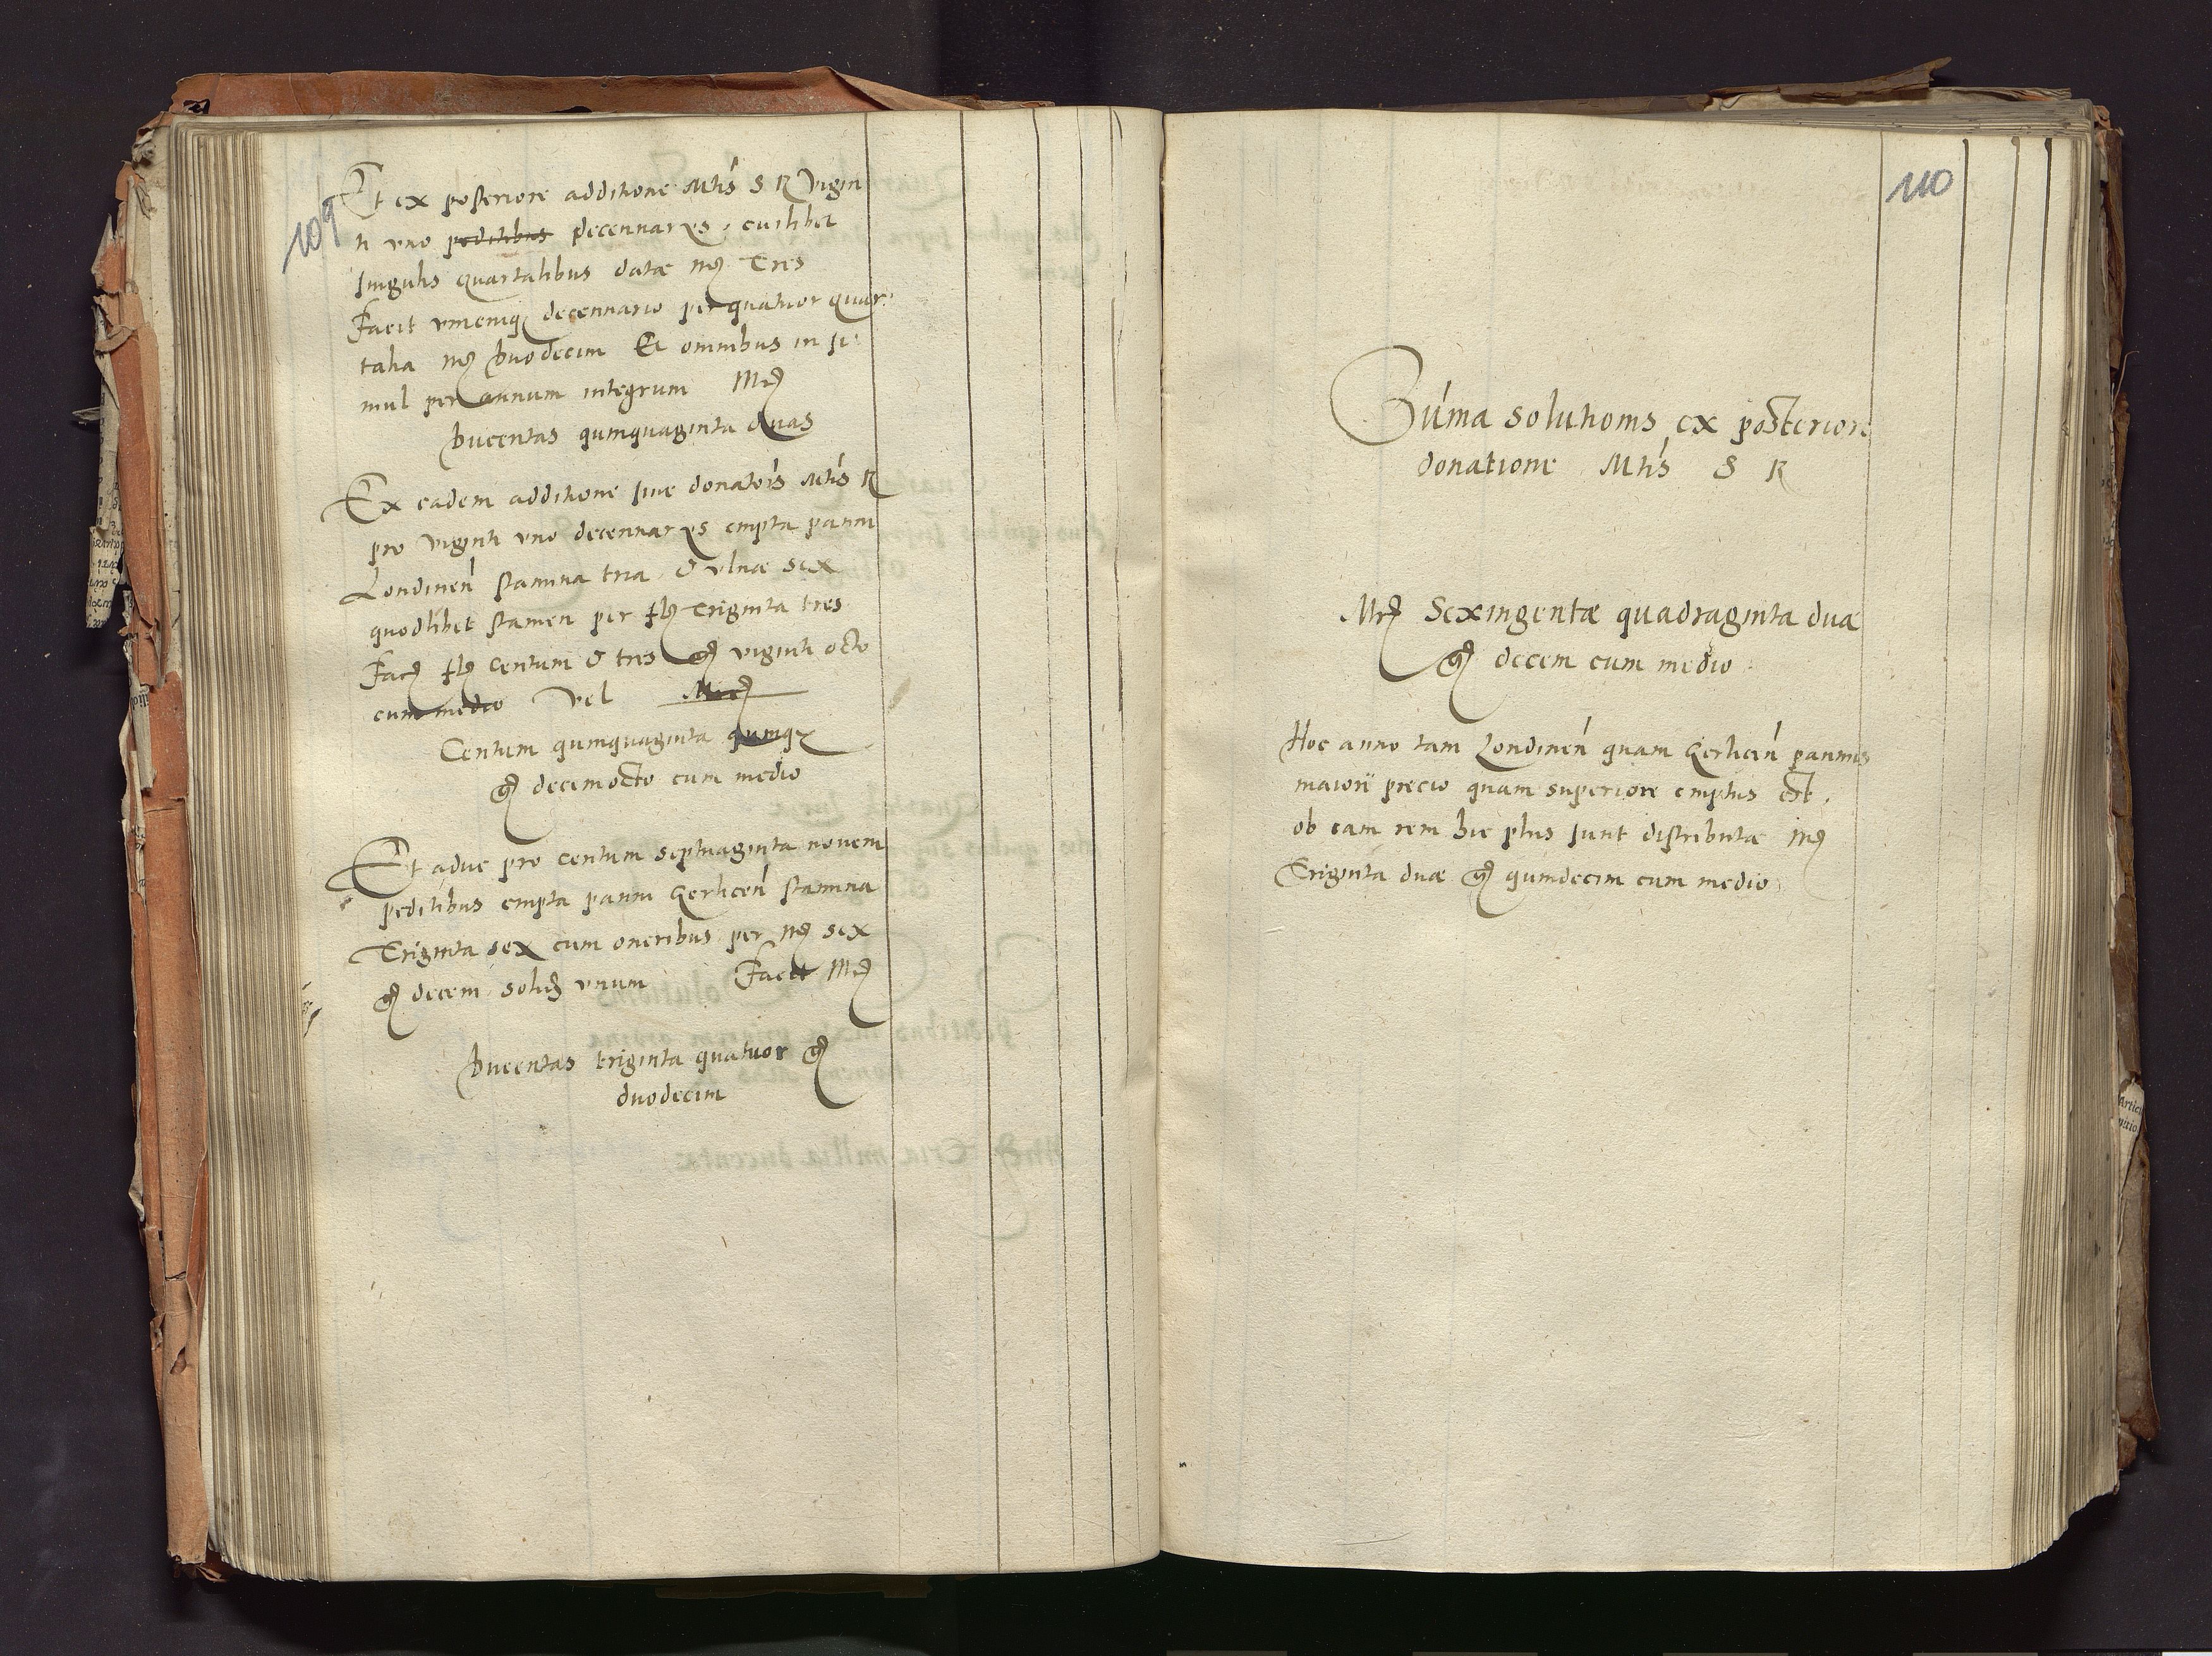 109
Et ex posteriore additione Mtis S R Vigin
ti vno peditibus decennarys, cuilibet
singulis quartalibus datæ mrc Tres
Facit vnicuiq decennario per quatuor quar
talia mrc duodecim Et omnibus in si
mul per annum integrum Mrc
ducentas quinquaginta duas
Ex eadem additione siue donatois Mtis R
pro viginti vno decennarys empta panni
Londinen stamina tria & vlnæ sex
quodlibet stamen per fl Triginta tres
Fac fl centum & tres gr viginti octo
cum medio Vel Mrc
Centum quinquaginta quinq
gr decemocto cum medio
Et aduc pro centum septuaginta nouem
peditibus empta panni Gerlicen stamina
Triginta sex cum oneribus per mrc sex
gr decem solid vnum Facit Mrc
ducentas triginta quatuor gr
duodecim
110
Suma solutionis ex posteriore
donatione Mtis S R
Mrc Sexingentæ quadraginta duæ
gr decem cum medio
Hoc anno tam Londinen quam Gerlicen pannus
maiori precio quam superiore emptus est,
ob eam rem hic plus sunt distributæ mrc
Triginta duæ gr quindecim cum medio